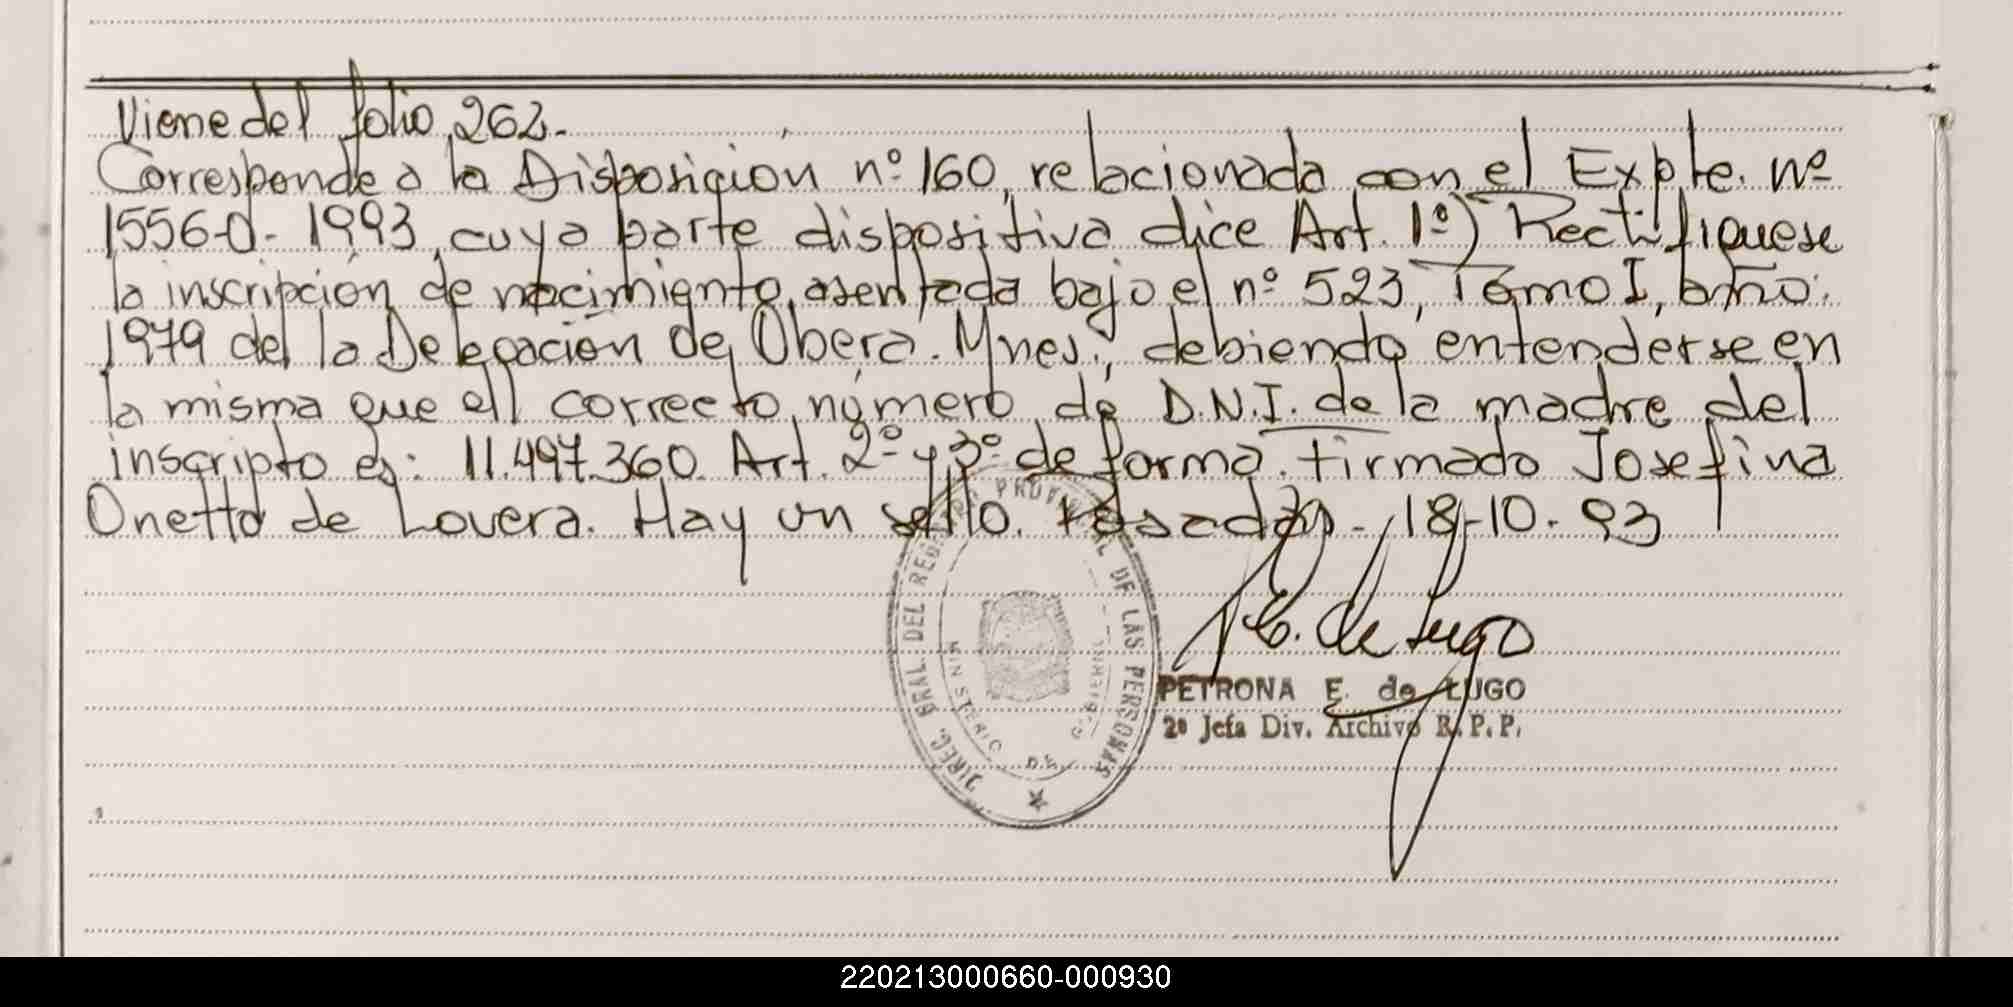 Viene del folio 262.-
Corresponde a la Disposición nº 160, relacionada con el Expte. nº
15560- 1993, cuya parte dispositiva dice Art. 1º) Rectifiquese
la inscripción de nacimiento, asentada bajo el nº 523, Tomo I, año:
1979 del la Delegación de Oberá. Mnes., debiendo entenderse en
la misma que ell correcto número de D.N.I. de la madre del
inscripto es: 11.497.360. Art. 2º y 3º de forma. Firmado Josefina
Onetto de Lovera. Hay un sello. Posadas-, 18-10-93
DIREC. GRAL. DEL REG. PROVINCIAL DE LAS PERSONAS
MINISTERIO DE GOBIERNO
E. de Lugo
PETRONA E. de LUGO
2º Jefa Div. Archivo R.P.P.
220213000660-000930